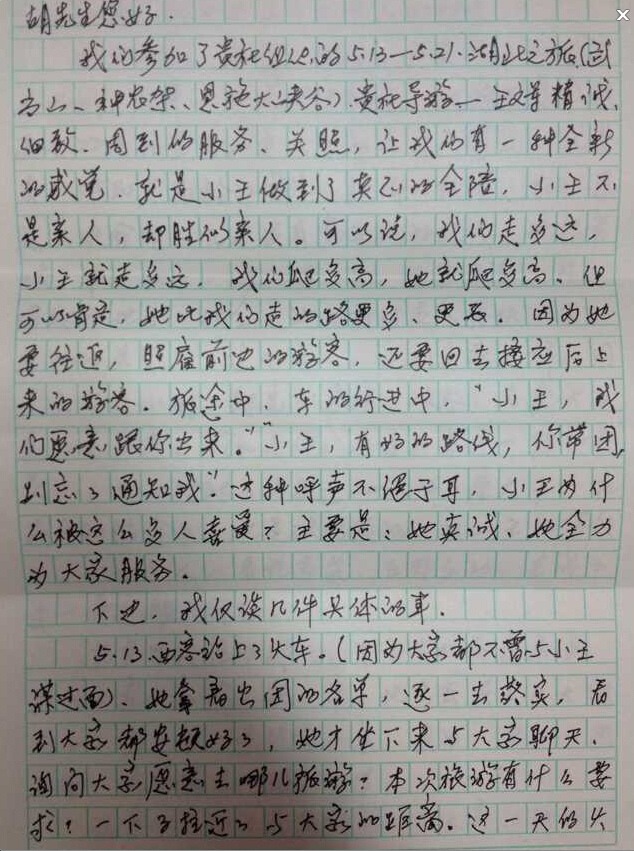 胡先生您好.
我们参加了贵社组织的5.13—5.21.湖北之旅(武
当山、神农架、恩施大峡谷)贵社导游—王 精诚、
细致、周到的服务、关照,让我们有一种全新
的感觉.就是小王做到了真正的全陪,小王不
是亲人,却胜似亲人。可以说,我们走多远,
小王就走多远,我们爬多高,她就爬多高.但
可以肯定,她比我们走的路更多、更长。因为她
要往返,照应前边的游客,还要回去接应后上
来的游客。旅途中,车的行进中,"小王,我
们愿意跟你出来。""小王,有好的路线,你带团,
别忘了通知我"这种呼声不绝于耳,小王为什
么被这么多人喜爱?主要是:她真诚、她全力
为大家服务。
下边,我仅谈几件具体的事.
5.13.西客站上了火车。(因为大家都不曾与小王
谋过面).她拿着出团的名单,逐一去核实,看
到大家都安顿好了,她才坐下来与大家聊天、
询问大家愿意去哪儿旅游?本次旅游有什么要
求?一下子拉近了与大家的距离。这一天的火